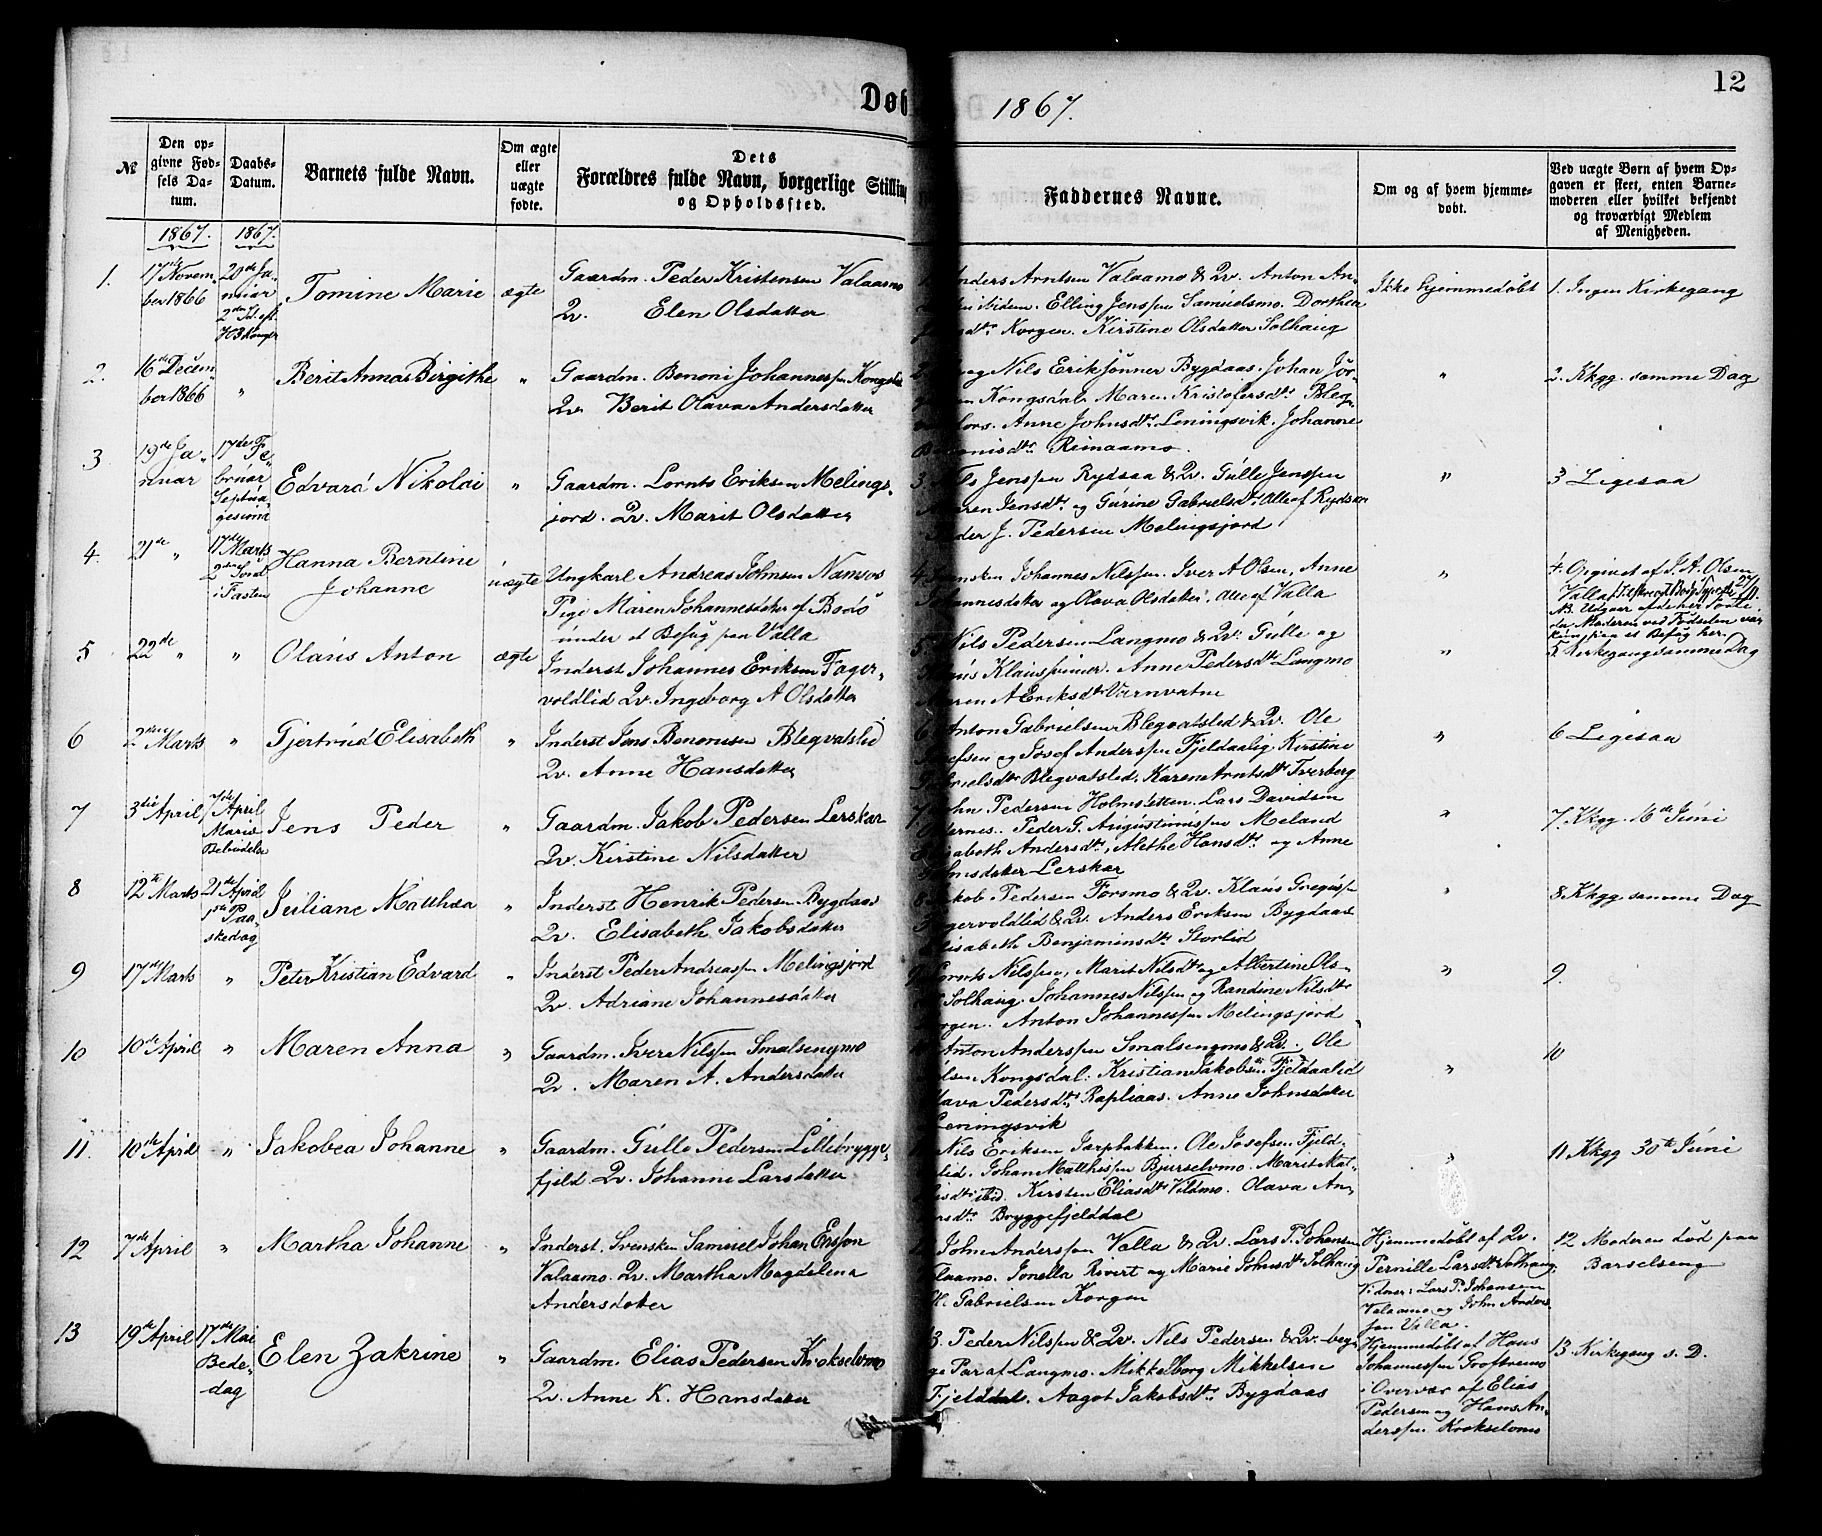 12
Døb
1867.
№
Den opgivne Fødsels Datum.
Daabs-Datum.
Barnets fulde Navn.
Om ægte eller uægte fødte.
Dets Forældres fulde Navn, borgerlige Stilling og Opholdssted.
Faddernes Navne.
Om og af hvem hjemmedøbt.
Ved uægte Børn af hvem Opgaven er skeet, enten Barnemoderen eller hvilket bekjendt og troværdigt Medlem af Menigheden.
1867. 1867.
1. 17de November 1866
20de Januar 2den Sd. eft. H 3 Konger
Tomine Marie
ægte
Gaardm. Peder Kristensen Valaamo
Qv. Elen Olsdatter
nders Arntsen Valaamo & Qv. Anton An-
ibidem. Elling Jenssen Samuelsmo. Dorthea
sdtr Korgen. Kirstine Olsdatter Solhaug
Ikke hjemmedøbt
1. Ingen Kirkegang
2. 16de December 1866
"
Berit Anna Birgithe
"
Gaardm. Benoni Johannessen Kongsda
Qv. Berit Olava Andersdatter
og Nils Eriksønner Bygdaas. Johan Jør-
en Kongsdal. Maren Kristofersdtr Bleg-
fors. Anne Johnsdtr Leningsvik. Johanne
onisdtr Reinaamo.
"
2. Kkgg. samme Dag
3. 19de Januar
17de Februar Septuagesima
Edvard Nikolai
"
Gaardm. Lornts Eriksen Melings-
jord. Qv. Marit Olsdatter
3. ls Jenssen Rydsaa & Qv. Gulle Jenssen
aren Jensdtr. og Gurine Gabrielsdtr. Alle af Rydsaa
eder J. Pedersen Melingsjord
"
3 Ligesaa
4. 21de "
17de Marts 2den Sønd. i Fasten
Hanna Berntine
Johanne
uægte
Ungkarl Andreas Johnsen Namsos
Pige Maren Johannesdatter af Bodø
under et Besøg paa Valla
4. vensken Johannes Nilssen. Iver A Olsen, Anne
ohannesdatter og Olava Olsdatter, Alle af Valla
"
4. Opgivet af I. A. Olsen
Valla
NB. Udgaar af de her Fødte
da Moderen ved Fødselen var
kun paa et Besøg her.
5 22de "
"
Olaus Anton
ægte
Inderst Johannes Eriksen Fager-
voldlid Qv. Ingeborg A Olsdatter
5. Nils Pedersen Langmo & Qv. Gulle og
us Klaussenner. Anne Pedersdtr Langmo
aren A Eriksdtr Varnvatne
"
5 Kirkegang samme Dag
6 2den Marts
"
Gjertrud Elisabeth
"
Inderst Jens Benonisen Blegvatslid
Qv. Anne Hansdatter
6 Anton Gabrielsen Blegvatslid & Qv. Ole
sefsen og Josef Anderssen Fjeldaalig. Kirstine
brielsdtr Blegvatslid, Karen Arntsdtr Tverberg
"
6 Ligesaa
7 3die April
7de April Mariæ Bebudelse
Jens Peder
"
Gaardm. Jakob Pedersen Lerskar
Qv. Kirstine Nilsdatter
7. ohn Pedersen Holmsletten. Lars Davidsen
dernes. Peder G. Augustinussen Meland
isabeth Andersdtr, Alethe Hansdtr og Anne
ohnsdatter Lerskar
"
7. Kkgg. 16de Juni
8 12te Marts
21de April 1ste Paaskedag
Juliane Matthea
"
Inderst Henrik Pedersen Bygdaas
Qv. Elisabeth Jakobsdatter
akob Pedersen Forsmo & Qv. Klaus Gregussen
gervoldlid & Qv. Anders Eriksen Bygdaas
lisabeth Benjaminsdtr Storlid
"
8 Kkgg samme Dag
9 17de Marts
"
Peter Kristian Edvard
"
Inderst Peder Andreassen Melingsjord
Qv. Adriane Johannesdatter
9. Lornts Nilssen, Marit Nilsdtr og Albertine Ols-
Solhaug. Johannes Nilssen og Randine Nilsdtr
orgen. Anton Johannessen Melingsjord
"
9.
10 10de April
"
Maren Anna
"
Gaardm. Iver Nilssen Smalsengmo
Qv. Maren A. Andersdatter
Anton Anderssen Smalsengmo & Qv. Ole
lsen Kongsdal. Kristian Jakobsen Fjeldaalid
lava Pedersdtr Rapliaas. Anne Johnsdatter
Leningsvik
"
10
11. 10de April
"
Jakobea Johanne
"
Gaardm. Gulle Pedersen Lillebrygge-
fjeld. Qv. Johanne Larsdatter
Nils Eriksen Jarpbakken. Ole Josefsen Fjeld-
lid. Johan Matthissen Bjurselvmo. Marit Mat-
isdtr ibid. Kirsten Eliasdtr Vildmo. Olava An-
rsdtr. Bryggefjelddal
"
11 Kkgg 30te Juni
12 7de April
"
Martha Johanne
"
Inderst. Svensken Samuel Johan Ersson
Valaamo. Qv. Martha Magdelena
Andersdatter
John Anderssen Valla & Qv. Lars P. Johansen
laamo. Jonella Rovert og Marie Johnsdtr Solhaug
H. Gabrielsen Korgen
Hjemmedøbt af Qv.
Pernille Larsdtr Solhaug.
Vidner: Lars P. Johansen
Valaamo og John Anders-
sen Valla.
12 Moderen død paa
Barselseng
13 19de April
17de Mai Bededag
Elen Zakrine
"
Gaardm. Elias Pedersen Krokselvmo
Qv. Anne K. Hansdatter
3. Peder Nilssen & Qv. Nils Pedersen & Qv. beg-
ge Par af Langmo. Mikkelborg Mikkelsen
Fjelddal. Aagot Jakobsdtr Bygdaas
Hjemmedøbt af Hans
Johannessen Groftremo
i Overvær af Elias
Pedersen og Hans An-
derssen Krokselvmo
13 Kirkegang s. D.